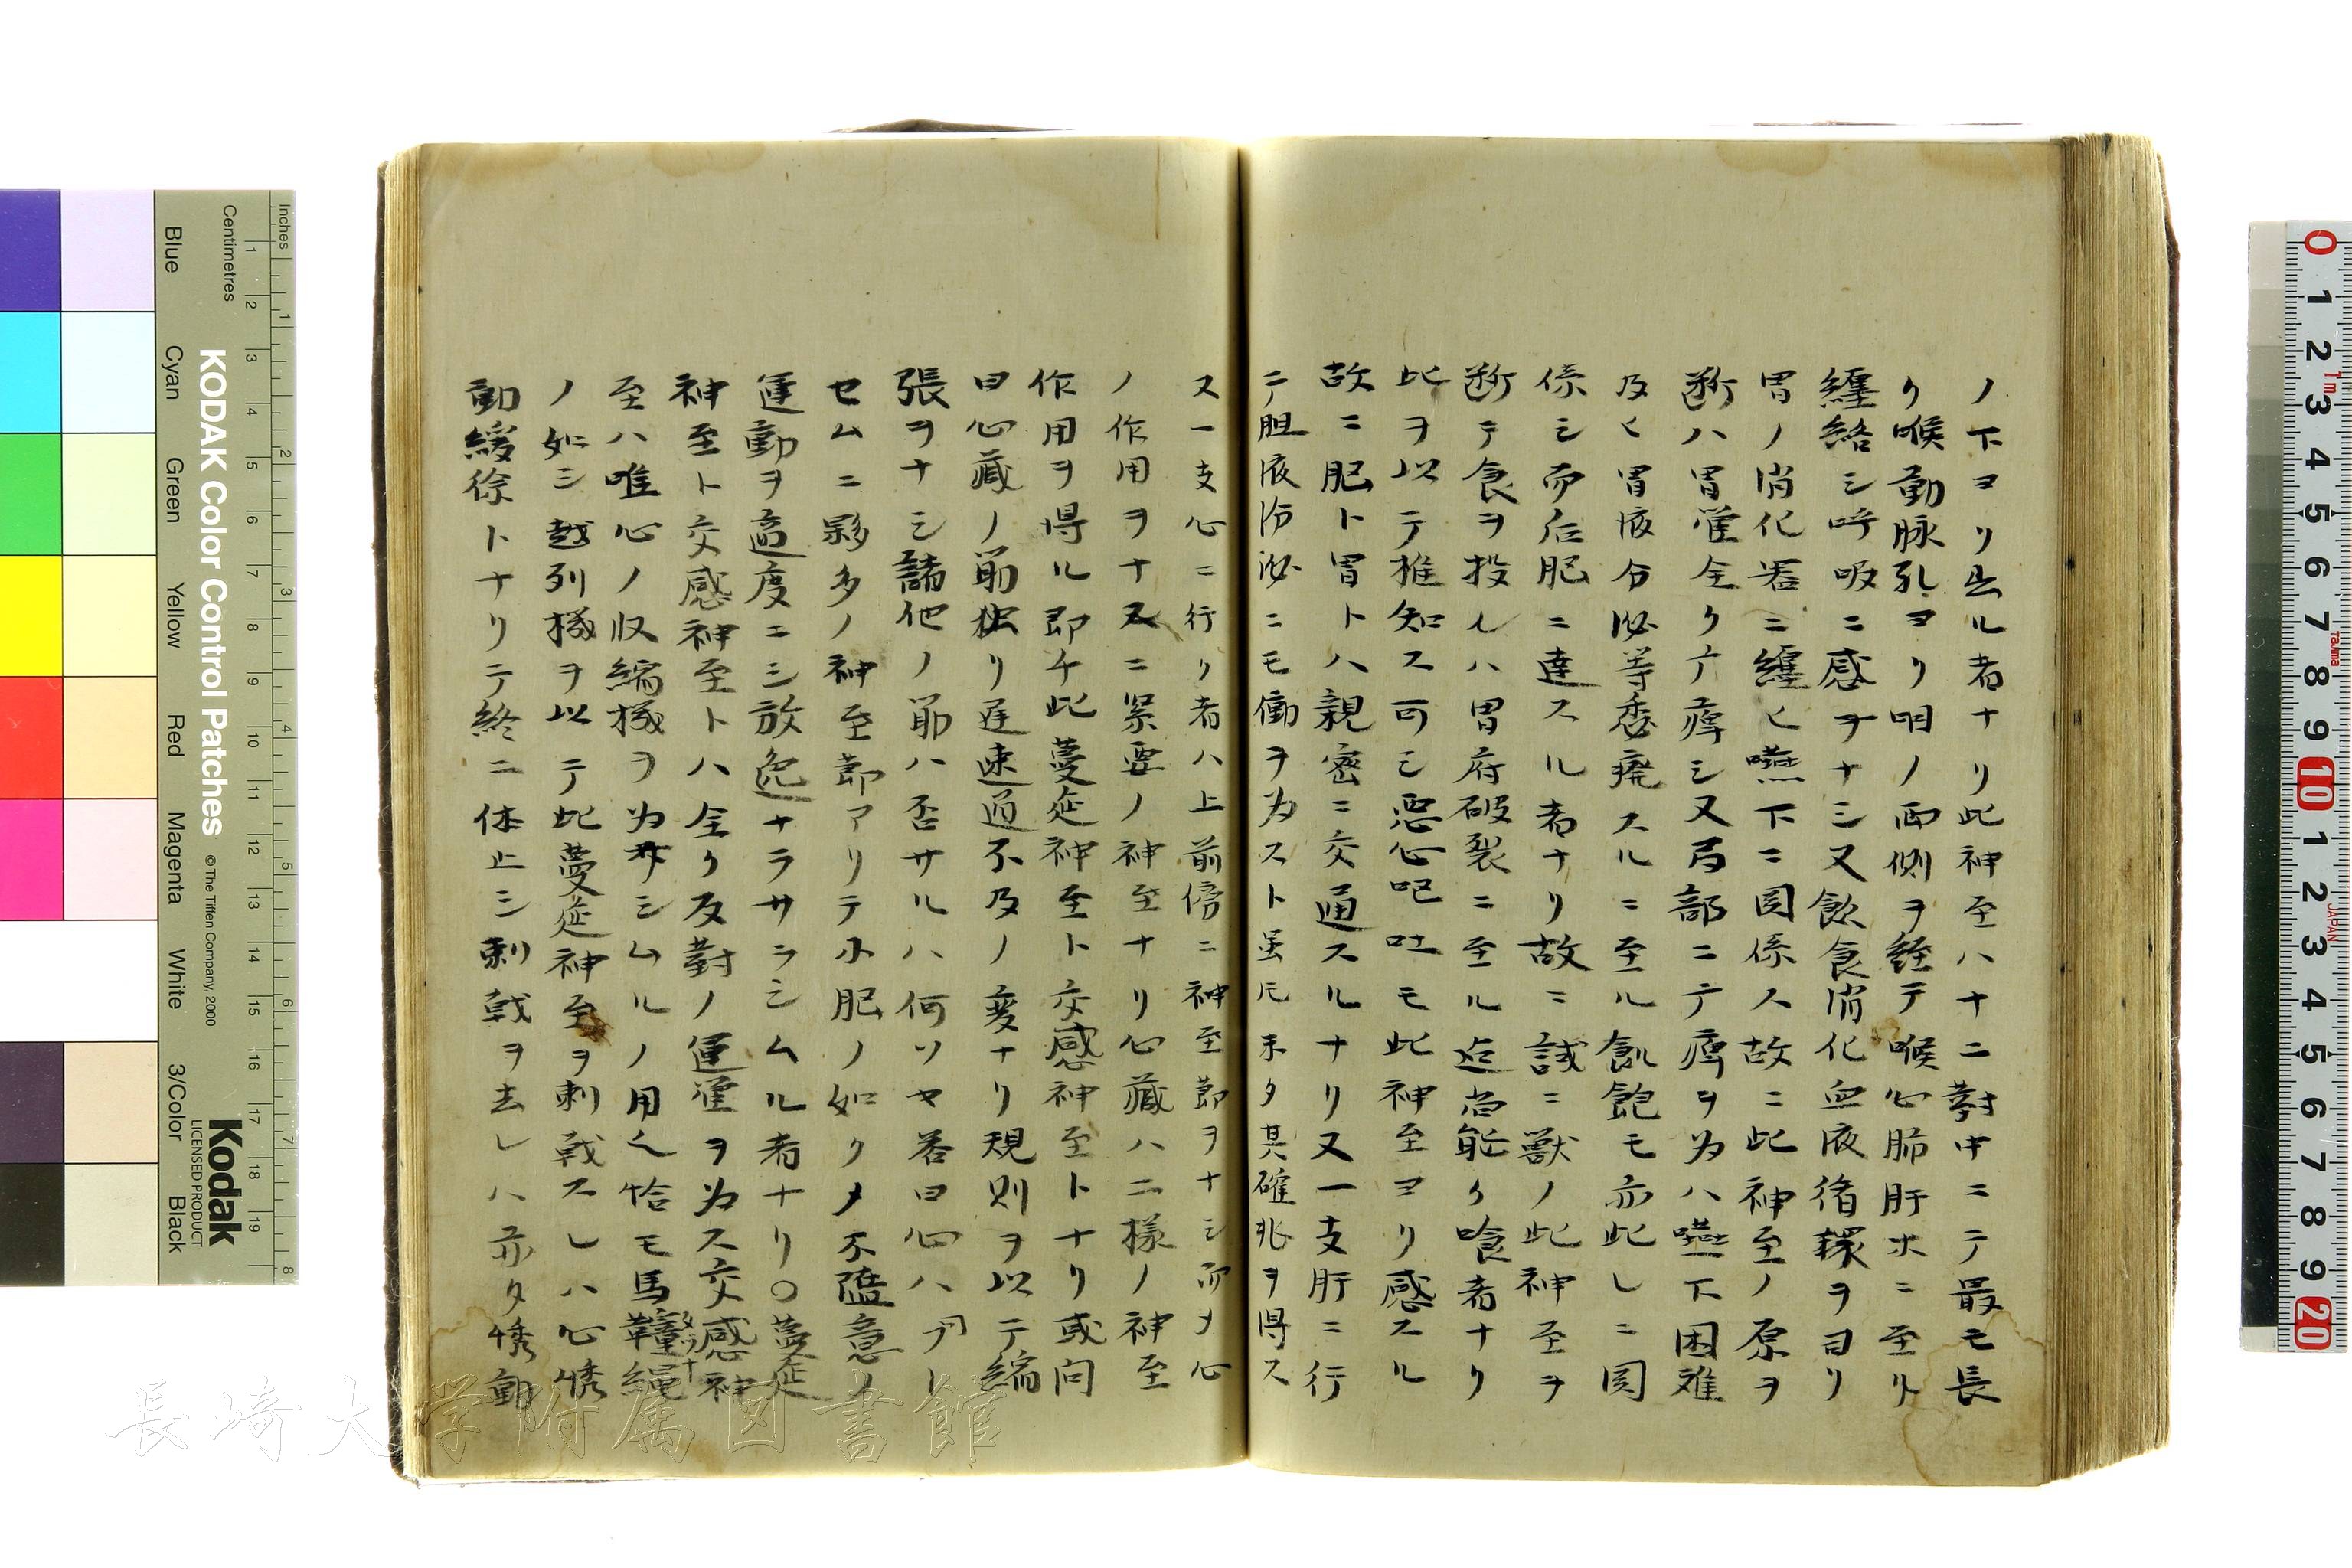 ノ下ヨリ出ル者ナリ此神至ハ十二對中ニテ最モ長
ク喉動脉孔ヨリ明ノ両側ヲ経テ喉心肺肝ホニ至リ
纏絡シ呼吸ニ感ヲナシ又飲食消化血液循環ヲ司リ
胃ノ消化器ニ纏ヒ嚥下ニ関係ス故ニ此神至ノ原ヲ
断ハ胃運全ク亡痺シ又局部ニ亡痺ヲ為ハ嚥下困難
及ヒ胃液分泌等悉廃スルニ至ル飢飽モ亦此レニ関
係シ而后肥ニ達スル者ナリ故ニ試ニ獣ノ此神至ヲ
断テ食ヲ投レハ胃府破裂ニ至ル迄尚能ク喰者ナリ
此ヲ以テ推知ス可シ悪心吧吐モ此神至ヨリ感スル
故ニ肥ト胃トハ親密ニ交通スルナリ又一支肝ニ行
テ胆液汾泌ニモ働ヲ為スト虽𪜈未タ其確兆ヲ得ス
又一支心ニ行リ者ハ上前傍ニ神至節ヲナシ而メ心
ノ作用ヲナス二緊要ノ神至ナリ心藏ハ二樣ノ神至
作用ヲ得ル即チ此蔓延神至ト交感神至トナリ或問
曰心藏ノ筋独リ遅速過不及ノ変ナリ規則ヲ以テ縮
張ヲナシ諸他ノ筋ハ否サルハ何ソヤ答曰心ハ
セムニ夥多ノ神至節アリテ小肥ノ如クメ不隨意ノ
運動ヲ適度ニシ放逸ナラサラシムル者ナリ〇蔓延
神至ト交感神至トハ全ク反對ノ運運ヲ為ス交感神
至ハ唯心ノ収縮機ヲ為サシムルノ用ヘ恰モ馬韁繩
ノ如シ越列機ヲ以テ此蔓延神至ヲ刺戟スレハ心悸
動緩徐トナリテ終ニ休止シ刺戟ヲ去レハ亦タ悸動
Inches
Centimetres
KODAK Color Control Patches
© The Tiffen Company, 2000
Kodak
LICENSED PRODUCT
Blue
Cyan
Green
Yellow
Red
Magenta
White
3/Color
Black
長崎大学附属図書館
0 1 2 3 4 5 6 7 8 9 10 1 2 3 4 5 6 7 8 9 20
1m
Tajima
JAPAN